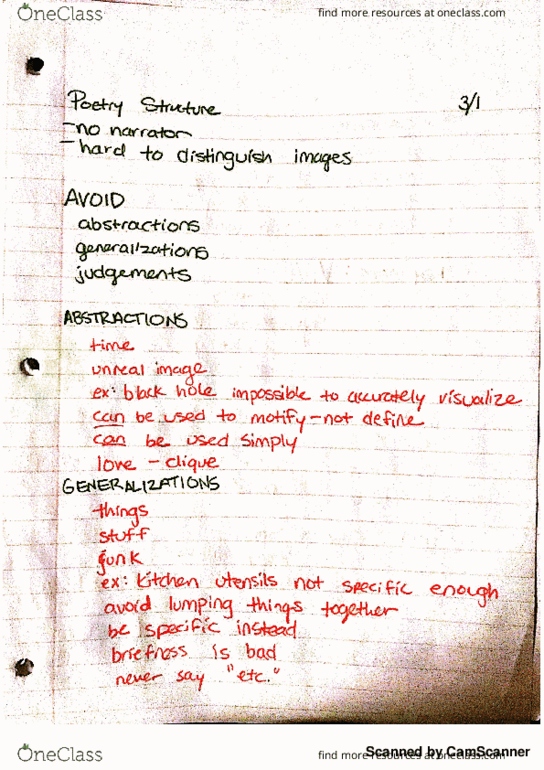 OneClass
find more resources at oneclass.com
Poetry Structure 3/1
-no narrator
-hard to distinguish images
AVOID
abstractions
generalizations
judgements
ABSTRACTIONS
time
unreal image
ex: black hole impossible to accurately visualize
can be used to motify-not define
can be used simply
love - clique
GENERALIZATIONS
things
stuff
junk
ex: kitchen utensils not specific enough
avoid lumping things together
be specific instead
briefness is bad
never say "etc."
OneClass
find more resources at oneclass.com
Scanned by CamScanner